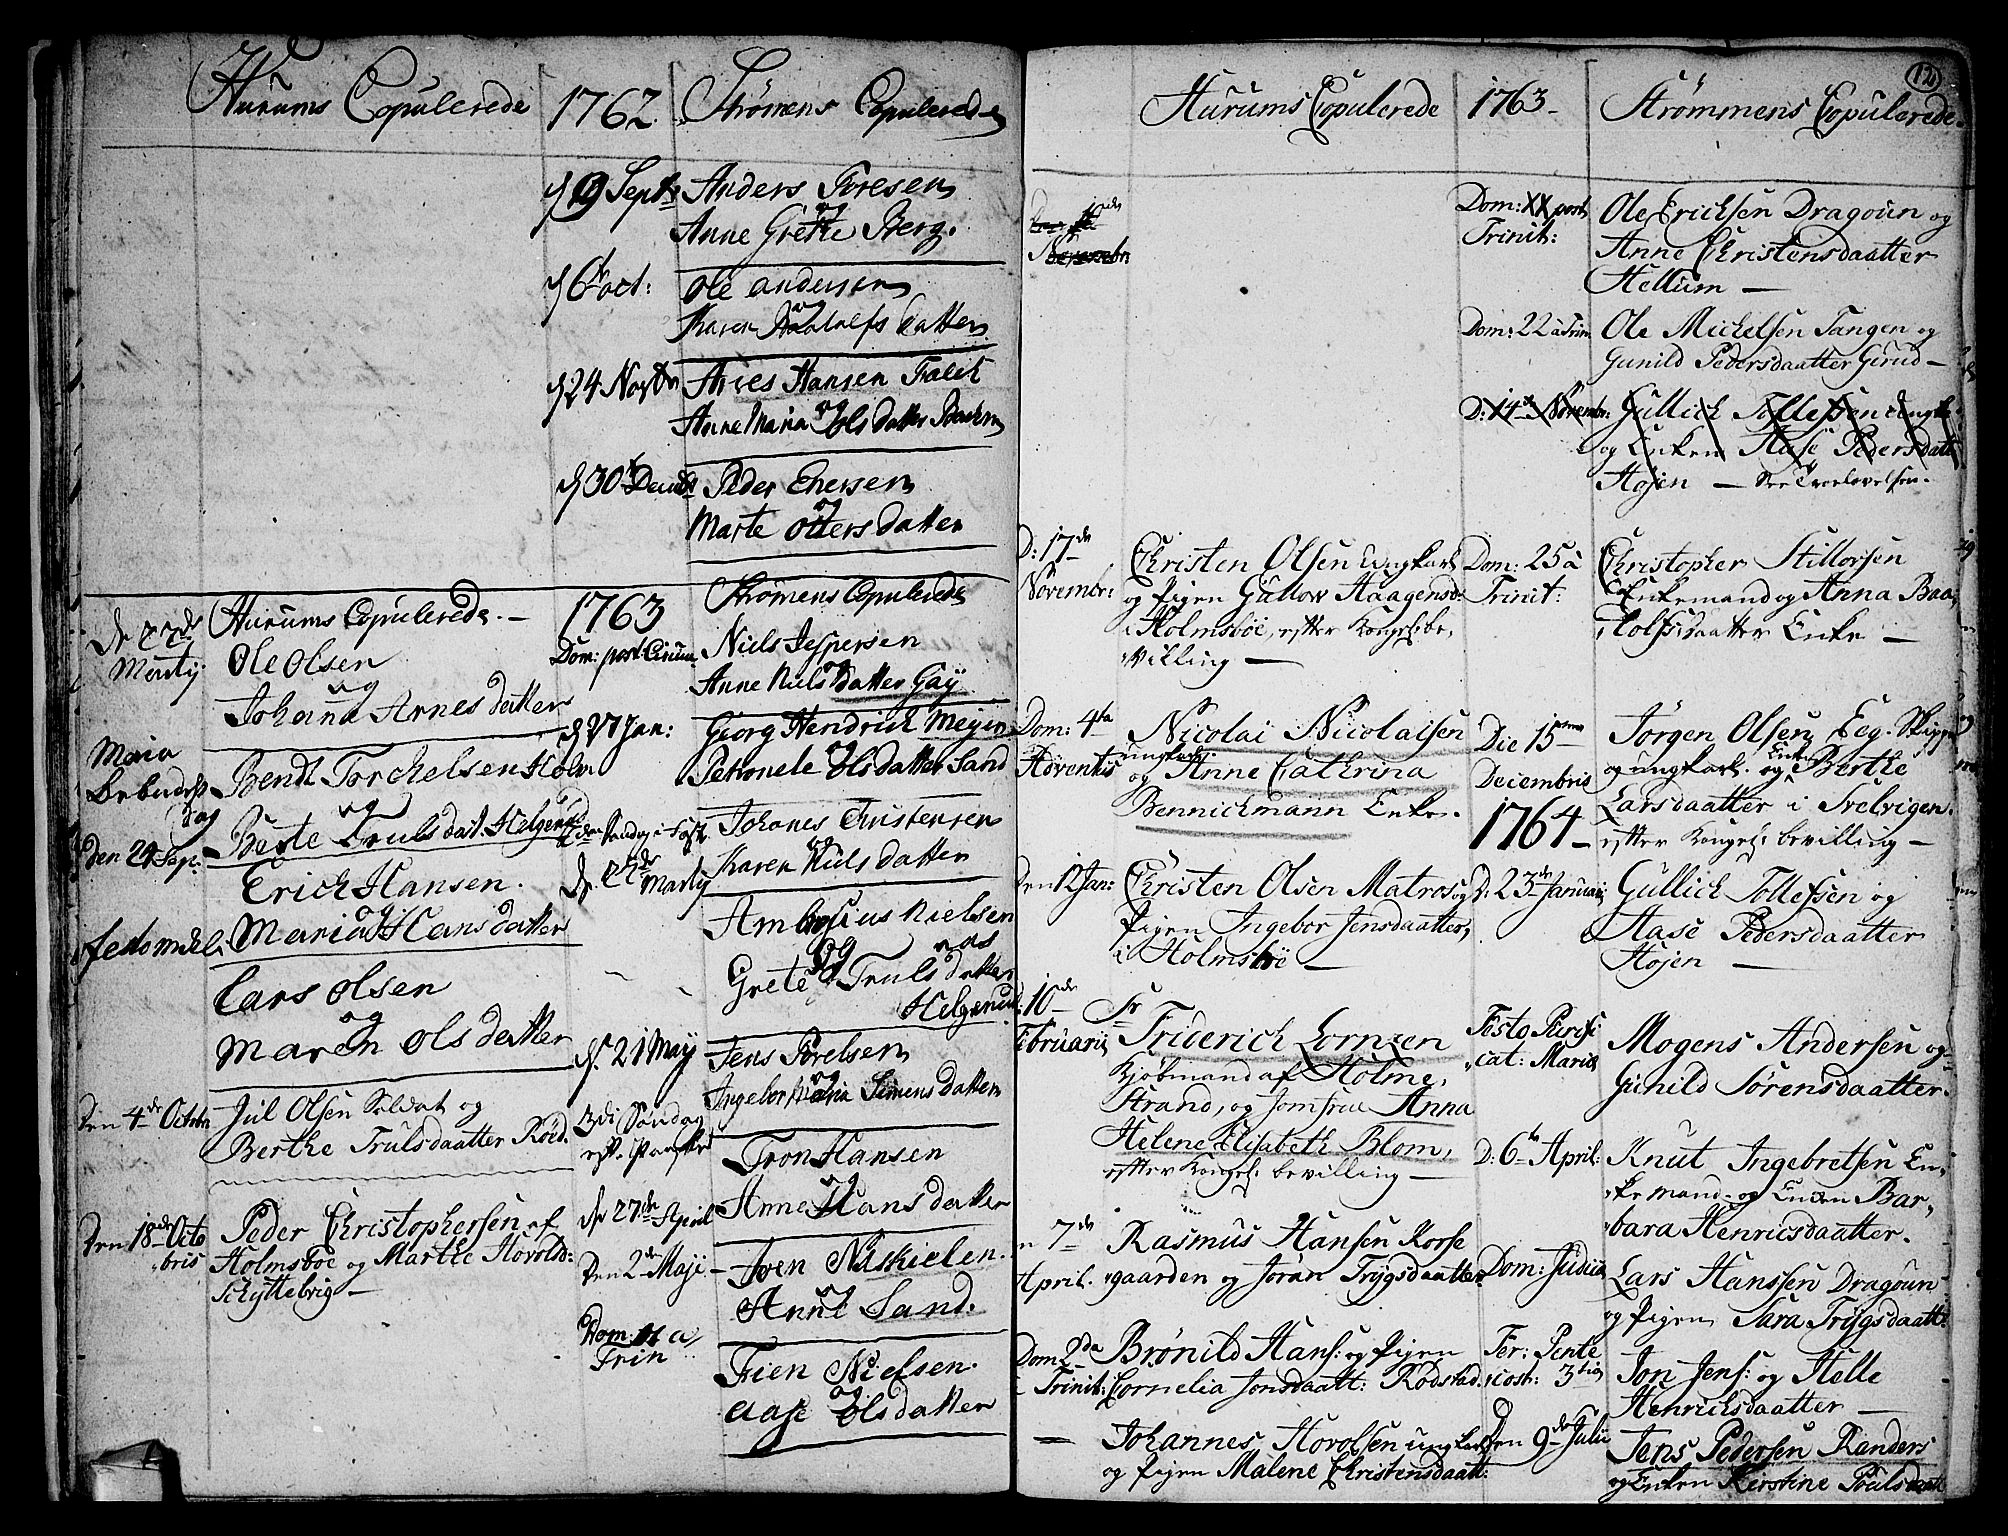 Hurums Copulerede
1762.
Strömens Copulerede
d 9 Sept:
Anders Toresen
og
Anne Grethe Berg.
d 6 oct:
Ole andersen
og
Karen datter
d 24
Hansen Falch
og
Anne Maria Ols datter
d 30
Peder Ehersen
og
Marte Otters datter
Hurums Copulerede. -
1763
Strömens Copulerede
Ole Olsen
og
Johana Arnes datter
Dom: post
Niels Jespersen
og
Anne Niels datter Gay
Maria
dag
Bendt Torchelsen Holm
og
Berte Truls dat. Helgerud
d 27 Jan:
Georg Hendrich Meyer
og
Petronele Ols datter Sand
den 29 Sep:
Erich Hansen.
og
Maria Hans datter
Johanes Christensen
og
Karen Niels datter
d 22de Martij
eodem die
Lars Olsen
og
Maren Ols datter
Ambrosius Nielsen
og
Grete Truls datter
Helgerud
d. 21 Maij
Jens Torelsen
og
Ingebor Maria Simens datter
Den 4de Octobr
Jul Olsen Soldat og
Berthe Trulsdaatter Röed.
3die Söndag
eft. Paaske
Tron Hansen
og
Anne Hans datter
Den 18de Octo
bris
Peder Christophersen af
Holmsböe og Marthe Hovolds:
Schÿttebrig —
de 27de April
Den 2de Maji -
Iven Niskielen.
og
Anne Sand.
Dom: 11 a
Trin
Fien Nielsen.
og
Aase Ols datter
12
Hurums Copulerede
1763-
Strömmens Copulerede.
Dom: XX post
Trinit:
Ole Erichsen Dragoun og
Anne Christensdaatter
Hellum —
Dom: 22 a Trin
Ole Michelsen Tangen og
Gunild Pedersdaatter Gerud —
D: 14de Novembr:
Gullich Tollefsen
og Enken Aase Pedersdatt
Höjen —
D: 17de
Novembr:
Christen Olsen ungkarl
og Pigen Gullow Haagensd:
i Holmsböe, efter Kongel: be,
villing —
Dom: 25 a
Trinit:
Christopher Stillorsen
Enkemand og Anna Baa,
daatter Enke —
Dom: 4ta
Adventis
Nicolai Nicolaisen
ungkarl
og Anne Cathrina
Bennichmann Enke.
Die 15
Decembris
Jörgen Olsen Eeg. Skipper
og ungkarl. og Enken Berthe
Larsdaatter i Svelvigen.
efter Kongel: bevilling —
1764-
Den 12 Jan:
Christen Olsen Matros og
Pigen Ingebor Jensdaatter,
i Holmsböe —
D: 23de Januarii
Gullich Tollefsen og
Aase Pedersdaatter
Höjen —
10de
Februarii
Sr
Friderich Lorntzen
Kjöbmand af Holme,
Strand, og Jomfrue Anna
Helene Elisabeth Blom,
efter Kongel: bevilling —
Festo Purifi
cat: Mariæ
Mogens Andersen og
Gunild Sörensdaatter.
D: 6te April:
Knut Ingebretsen En,
ke mand og Enken Bar,
bara Henricsdaatter.
7de
April.
Rasmus Hansen Korse
gaarden og Joran Trygsdaatter
Dom: Judica
Lars Hanssen Dragoun
og Pigen Sara Trÿgsdaatt:
Dom 2da
Trinit:
Brönild Hans: og Pigen
Cornelia Jonsdaatt: Rödstad.
Fer: Pente
cost: 3tia
Jon Jens: og Helle
Henrichsdaatter —
—
Johannes Hovolsen ungkarl
og Pigen Malene Christensdaatt:
Den 9de Julii
Jens Pedersen Randers
og Enken Kerstine Poulsdaatt